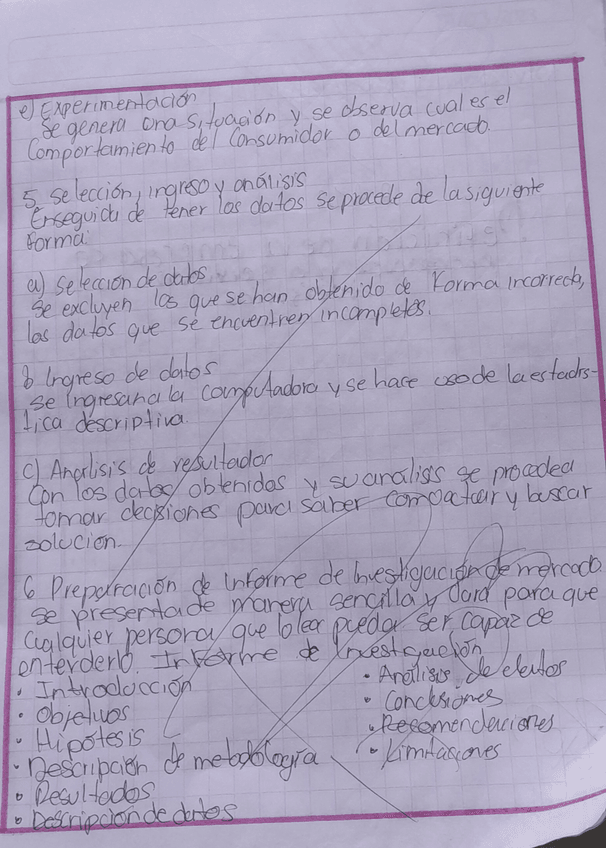 e) Experimentación
Se genera una situación y se observa cual es el
Comportamiento del Consumidor o del mercado.
5. Selección, ingreso y análisis
Enseguida de tener los datos se procede de la siguiente
Forma:
a) Selección de datos.
Se excluyen los que se han obtenido de Forma incorrecta,
los datos que se encuentren incompletos.
b Ingreso de datos
se ingresan a la computadora y se hace uso de la estadis-
tica descriptiva.
c) Analisis de resultados
Con los datos obtenidos y su analisis se procede a
tomar decisiones para saber como actuar y buscar
solución.
6 Preparación de Informe de Investigación de mercado
se presenta de manera sencilla y clara para que
Cualquier persona que lo lea pueda ser capaz de
entenderlo. Informe de Investigación
• Introducción
• Objetivos
• Hipótesis
• Descripción de metodología
• Resultados
• Descripcion de datos
• Análisis de efectos
• Conclsiones
• Recomendaciones
• Limitaciones